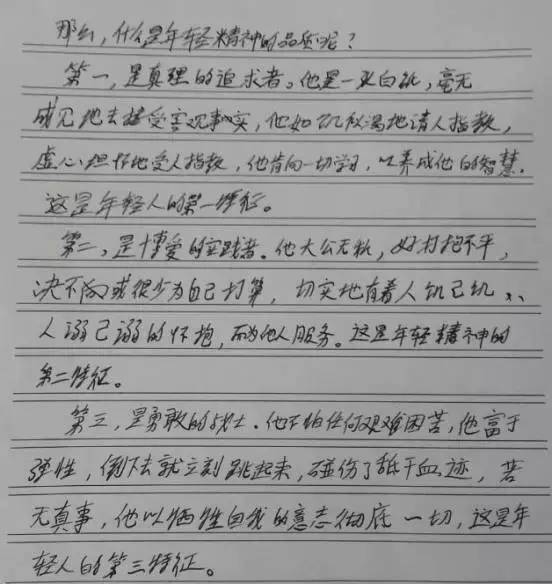 那么，什么是年轻精神的品质呢？
第一，是真理的追求者。他是一张白纸，毫无
成见地去接受客观事实，他如饥似渴地请人指教，
虚心坦怀地受人指教，他肯向一切学习，以养成他的智慧.
这是年轻人的第一特征。
第二，是博爱的实践者。他大公无私，好打抱不平，
决不或很少为自己打算，切实地有着人饥己饥、
人溺己溺的怀抱，而为他人服务。这是年轻精神的
第二特征。
第三，是勇敢的战士.他不怕任何艰难困苦，他富于
弹性，倒下去就立刻跳起来，碰伤了舐干血迹，若
无其事，他以牺牲自我的意志彻底一切，这是年
轻人的第三特征。